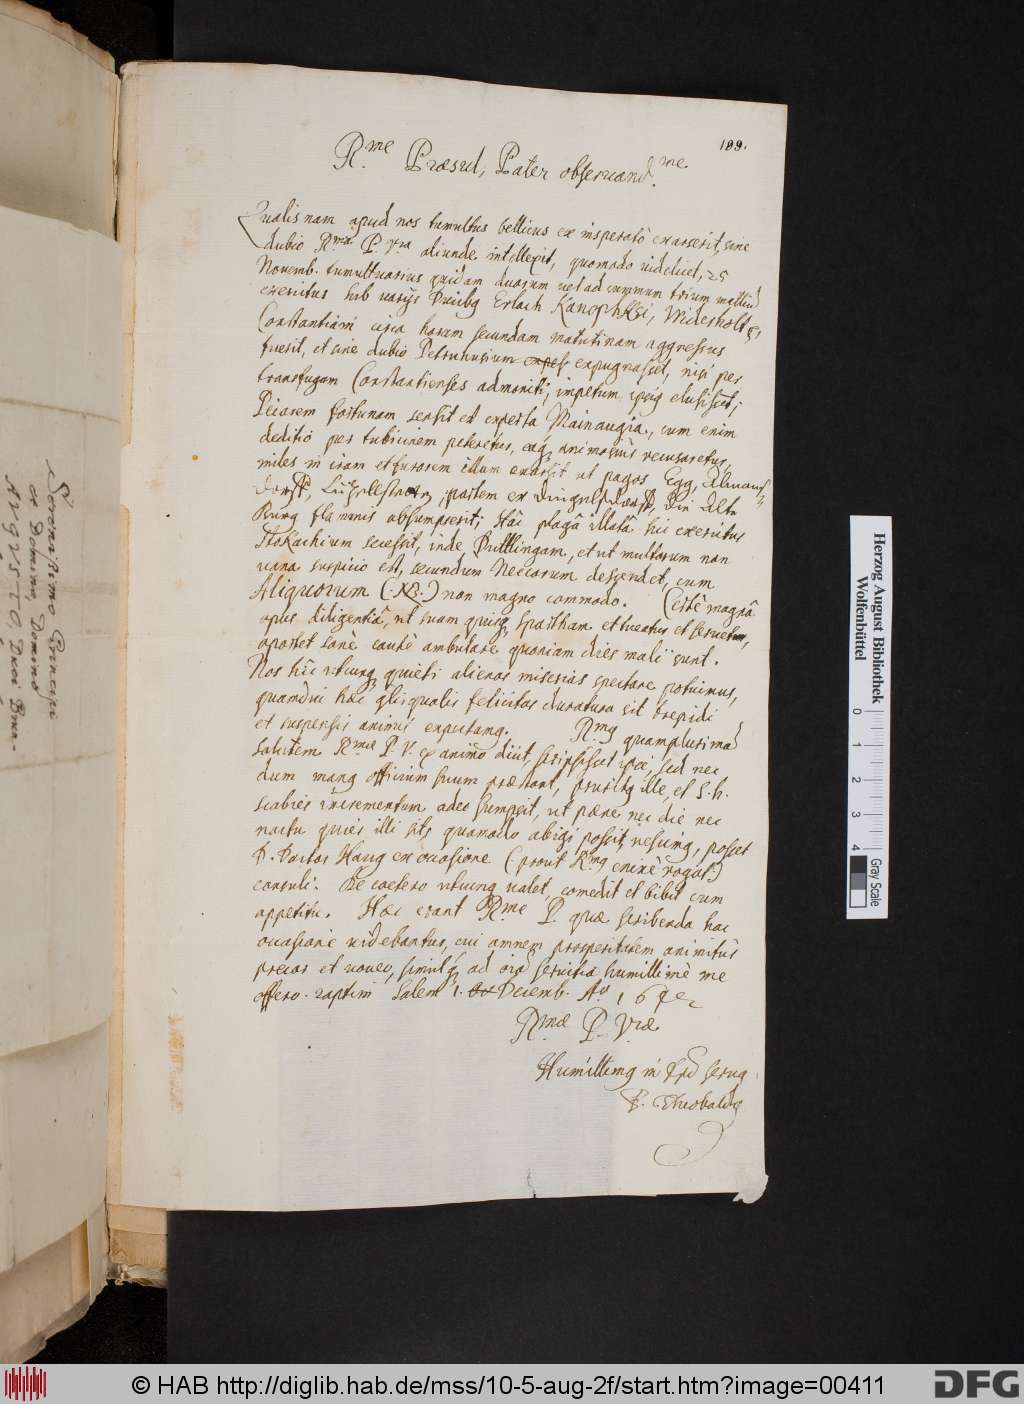 199.
R.me Præsul, Pater obseruand.me.
Qualisnam apud nos tumultus bellicus ex insperatò exarserit, sine
dubio R.ma P. V.ra aliunde intellexit, quomodo videlicet, 25
Novemb. tumultuarius quidam duorum vel ad summum trium millium
exercitus sub varijs Ducibq Erlach Kanophski, Widerholt &c
Constantiam circa horam secundam matutinam aggressus
fuerit, et sine dubio Petrihusium expugnasset, nisi per
transfugam Constantienses admoniti, impetum ipsiq elusissent;
Piorem fortunam sensit et experta Mainaugia, cum enim
deditio per tubicinem peteretur, eaq animosiùs recusaretur,
miles in iram et furorem illum exarsit ut pagos Egg, Almans
dorff, Lützelstetten, partem ex Dingelsdorff, Die Alte
Burg flammis absumpserit; Hâc plagâ illatâ hic exercitus
Stokachium secessit, inde Duttlingam, et ut multorum non
vana suspicio est, secundum Neccarum descendet, cum
Aliquorum (.NB.) non magno commodo. Certè magnâ
opus diligentiâ, ut suam quisq Spartham et tueatur et seruet,
oportet sanè cautè ambulare quoniam dies mali sunt.
Nos hîc utcunq quieti alienas miserias spectare possumus,
quamdiu hæc qualisqualis felicitas duratura sit trepidi
et suspensis animis expectamq. R.mq quamplurimâ
salutem R.mæ P. V. ex animo dicit, scripsisset ipse, sed nec
dum manq officium suum præstant, pruritq ille, et S.h.
scabies incrementum adeo sumpsit, ut pæne nec die nec
noctu quies illi sit, quomodo abigi possit, nescimq, posset
D. Doctor Haug ex occasione (prout R.mq enixè rogat)
consuli. De coetero utcunq valet, comedit et bibit cum
appetitu. Hæc erant R.me P. quæ scribenda hac
occasione videbantur, cui omnem prosperitatem animitùs
precor et voueo, simulq ad oia servitia humillimè me
offero. raptim Salem 1. Decemb. Ao 1642
R.mæ P. V.ræ
Humillimq in Xpo Seruq
F. Theobaldq
Serenissimo Principi
ac Domino, Domino
AUGUSTO, Duci Bru-
Herzog August Bibliothek
Wolfenbüttel
0 1 2 3 4
Gray Scale
© HAB http://diglib.hab.de/mss/10-5-aug-2f/start.htm?image=00411
DFG